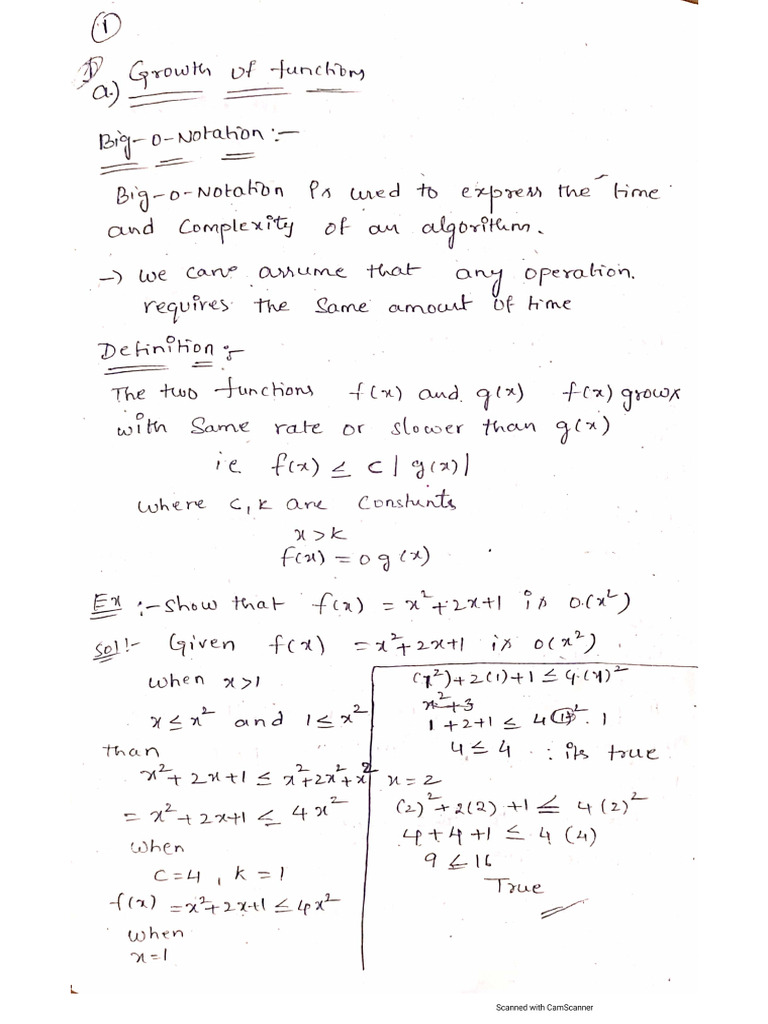 1
1)
a.) Growth of functions
Big-O-Notation :-
Big-O-Notation is used to express the time
and complexity of an algorithm.
→ we can assume that any operation.
requires the same amount of time
Definition :-
The two functions f(x) and g(x) f(x) grows
with same rate or slower than g(x)
ie f(x) ≤ c|g(x)|
where c, k are constants
x>k
f(x) = o g(x)
Ex :- show that f(x) = x²+2x+1 is O.(x²)
Sol!- Given f(x) = x²+2x+1 is O(x²).
when x>1
x ≤ x² and 1 ≤ x²
than
x²+2x+1 ≤ x²+2x²+x²
= x²+2x+1 ≤ 4x²
when
c=4, k=1
f(x) = x²+2x+1 ≤ 4x²
when
x=1
(1²)+2(1)+1 ≤ 4.(1)²
x²+3
1+2+1 ≤ 4(1)² . 1
4 ≤ 4 : its true
x=2
(2)²+2(2)+1 ≤ 4(2)²
4+4+1 ≤ 4(4)
9 ≤ 16
True
Scanned with CamScanner